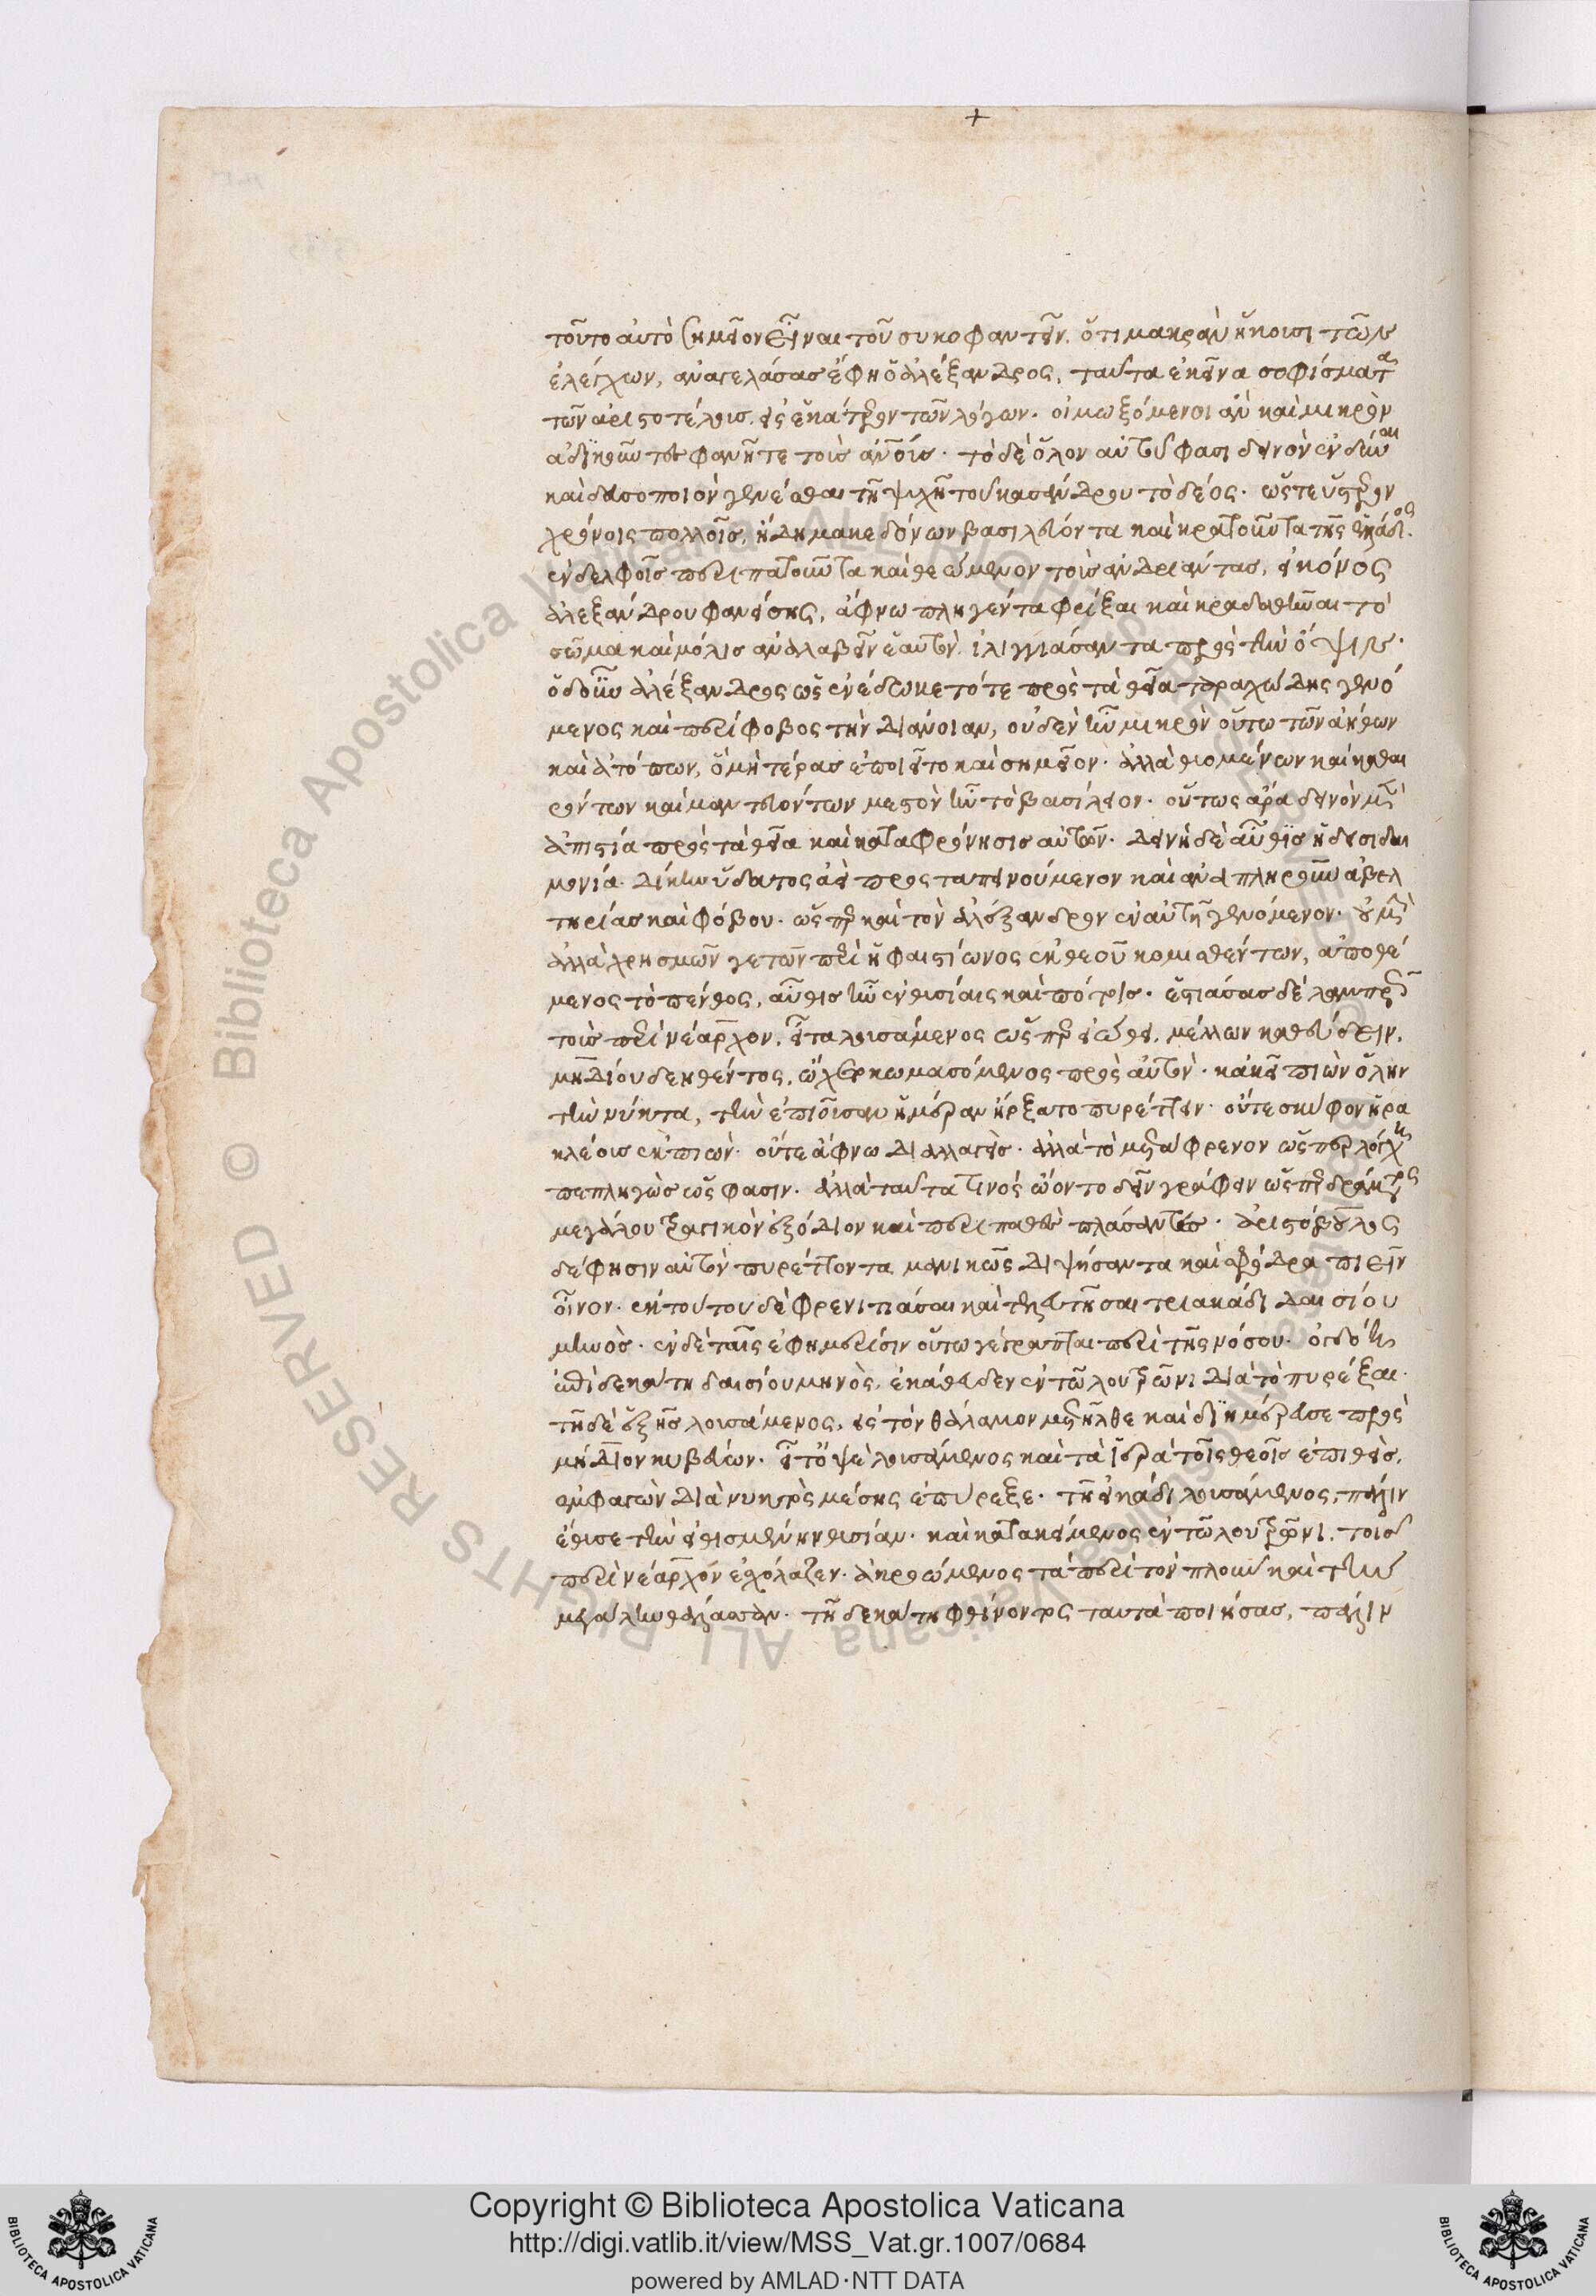 τοῦτο αὐτὸ σημεῖον εἶναι τοῦ συκοφαντεῖν. ὅτι μακρὰν ἥκουσι τῶν
ἐλέγχων, ἀναγελάσας ἔφη ὁ ἀλέξανδρος, ταῦτα ἐκεῖνα σοφίσματα
τῶν ἀριστοτέλους. εἰς ἑκάτερον τῶν λόγων. οἰμωξόμενοι ἂν καὶ μικρὸν
ἀδικοῦντες φανῆτε τοὺς ἀνοὺς. τὸ δὲ ὅλον αὐτῶ φασι δεινὸν ἐνδῦναι
καὶ δευσοποιὸν γενέσθαι τῆ ψυχῆ τοῦ κασάνδρου τὸ δέος. ὥστε ὕστερον
χρόνοις πολλοῖς, ἤδη μακεδόνων βασιλεύοντα καὶ κρατοῦντα τῆς ἑλλάδος.
ἐν δελφοῖς περιπατοῦντα καὶ θεώμενον τοὺς ἀνδριάντας, εἰκόνος
ἀλεξάνδρου φανείσης, ἄφνω πληγέντα φρίξαι καὶ κραδανθῆναι τὸ
σῶμα καὶ μόλις ἀναλαβεῖν ἑαυτὸν. ἰλιγγιάσαντα πρὸς τὴν ὄψιν.
ὁ δοὖν ἀλέξανδρος ὡς ἐνέδωκε τότε πρὸς τὰ θεῖα ταραχώδης γενό
μενος καὶ περίφοβος τὴν διάνοιαν, οὐδὲν ἦν μικρὸν οὕτω τῶν ἀήθων
καὶ ἀτόπων, ὃ μὴ τέρας ἐποιεῖτο καὶ σημεῖον. ἀλλὰ θυομένων καὶ καθαι
ρόντων καὶ μαντευόντων μεστὸν ἦν τὸ βασίλειον. οὕτως ἄρα δεινὸν μὲν
ἀπιστία πρὸς τὰ θεῖα καὶ καταφρόνησις αὐτῶν. δεινὴ δὲ αὖθις ἡ δεισιδαι
μονία. δίκην ὕδατος ἀεὶ πρὸς ταπεινούμενον καὶ ἀναπληροῦν ἀβελ
τηρίας καὶ φόβου. ὥσπερ καὶ τὸν ἀλέξανδρον ἐν αὐτῆ γενόμενον. οὐ μὴν
ἀλλὰ χρησμῶν γε τῶν περὶ ἡφαιστίωνος ἐκ θεοῦ κομισθέντων, ἀποθέ
μενος τὸ πένθος, αὖθις ἦν ἐν θυσίαις καὶ πότοις. ἑστιάσας δὲ λαμπρῶς
τοὺς περὶ νέαρχον, εἶτα λουσάμενος ὥσπερ εἰώθει, μέλλων καθεύδειν,
μηδίου δεηθέντος, ὤχετο κωμασόμενος πρὸς αὐτὸν. κἀκεῖ πιὼν ὅλην
τὴν νύκτα, τὴν ἐπιοῦσαν ἡμέραν ἤρξατο πυρέττειν. οὔτε σκύφον ἡρα
κλέους ἐκπιὼν. οὔτε ἄφνω διαλλαγεὶς. ἀλλὰ τὸ μετάφρενον ὥσπερ λόγχη
πεπληγὼς ὥς φασιν. ἀλλὰ ταῦτα τινὲς ᾤοντο δεῖν γράφειν ὥσπερ δράματος
μεγάλου τραγικὸν ἐξόδιον καὶ περιπαθὲς πλάσαντες. ἀριστόβουλος
δέ φησιν αὐτὸν πυρέττοντα μανικῶς διψήσαντα καὶ σφόδρα πιεῖν
οἶνον. ἐκ τούτου δὲ φρενιτιάσαι καὶ τελευτῆσαι τριακάδι δαισίου
μηνὸς. ἐν δὲ ταῖς ἐφημερίσιν οὕτω γέγραπται περὶ τῆς νόσου. ὀγδόη
ἐπὶ δεκάτη δαισίου μηνὸς, ἐκάθευδεν ἐν τῶ λουτρῶνι διὰ τὸ πυρέξαι.
τῆ δὲ ἑξῆς λουσάμενος, εἰς τὸν θάλαμον μετῆλθε καὶ διημέρευσε πρὸς
μήδιον κυβεύων. εἶτ ὀψὲ λουσάμενος καὶ τὰ ἱερὰ τοῖς θεοῖς ἐπιθεὶς,
ἐμφαγὼν διὰ νυκτὸς μέσης ἐπύρεξε. τῆ εἰκάδι λουσάμενος, πάλιν
ἔθυσε τὴν εἰθισμένην θυσίαν. καὶ κατακείμενος ἐν τῶ λουτρῶνι, τοῖς
περὶ νέαρχον ἐσχόλαζεν. ἀκροώμενος τὰ περὶ τὸν πλοῦν καὶ τὴν
μεγάλην θάλασσαν. τῆ δεκάτη φθίνοντος ταυτὰ ποιήσας, πάλιν
Copyright © Biblioteca Apostolica Vaticana
http://digi.vatlib.it/view/MSS_Vat.gr.1007/0684
powered by AMLAD·NTT DATA